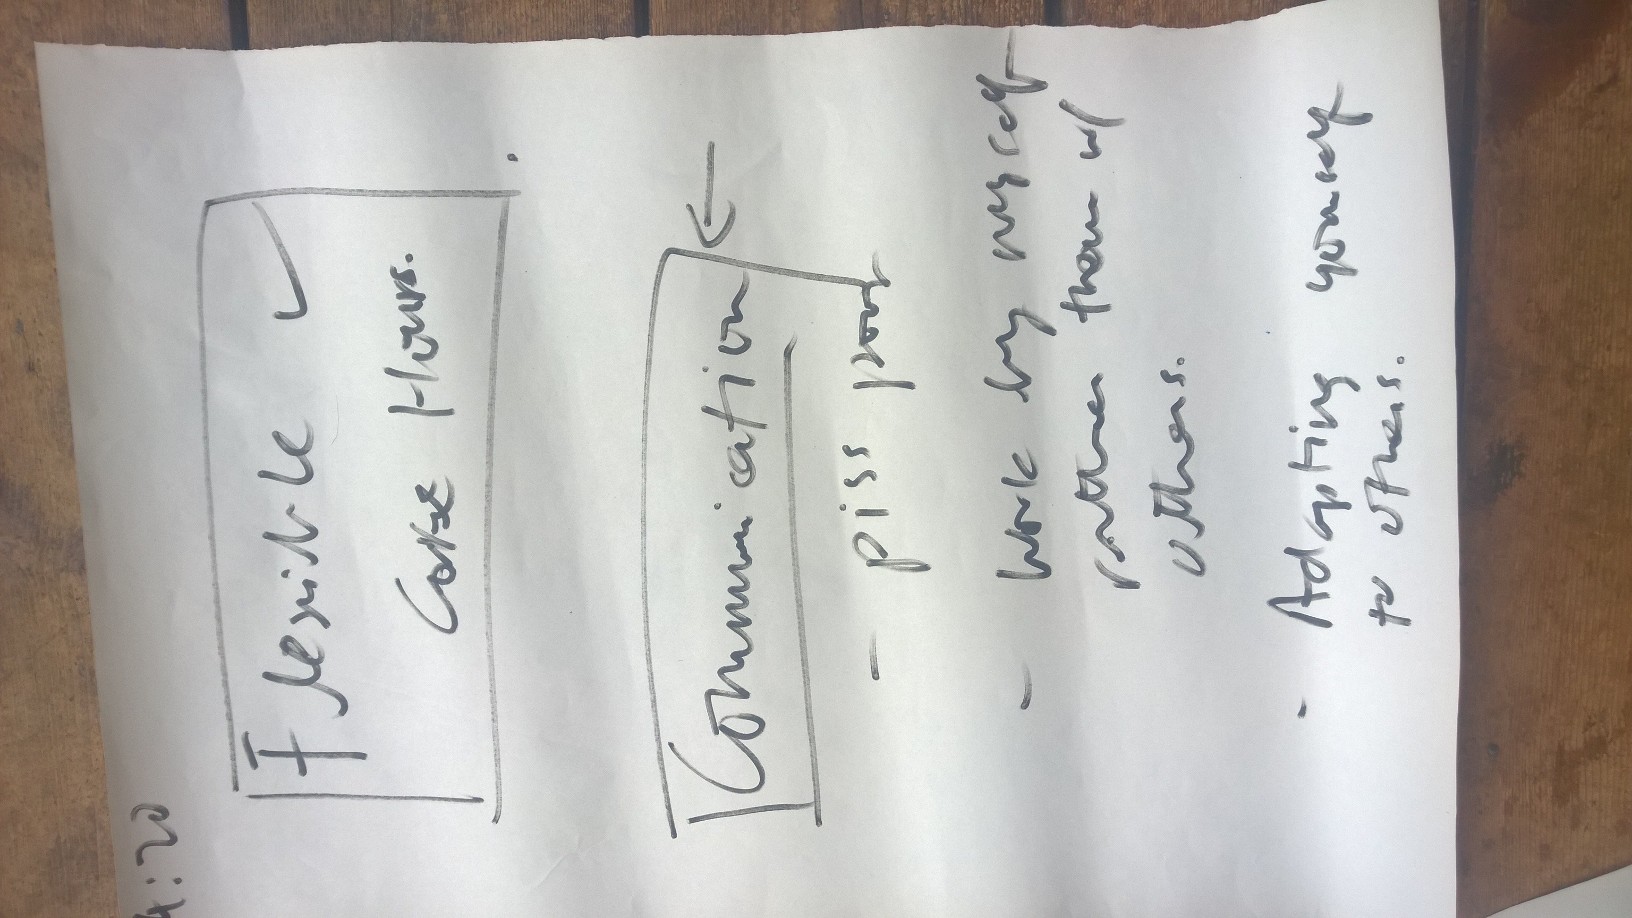 4:20
Flexible ✓
Core Hours.
Communication ←
- piss poor
- Work by myself
rather than w/
others.
- Adapting yourself
to others.